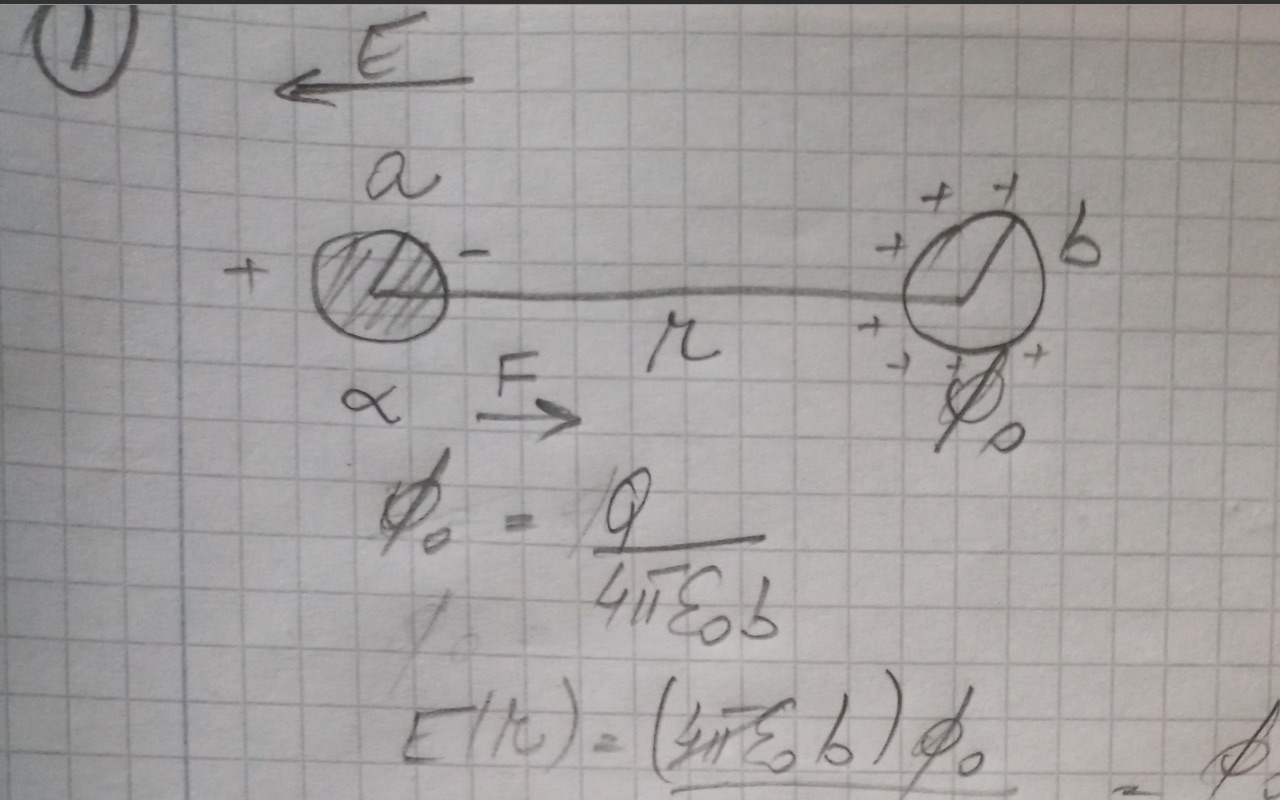 1
E
a
+ -
+ + + + + + +
b
r
α
F
ϕ₀
ϕ₀ = Q
4πε₀b
E(r) = (4πε₀b)ϕ₀ = ϕ₀